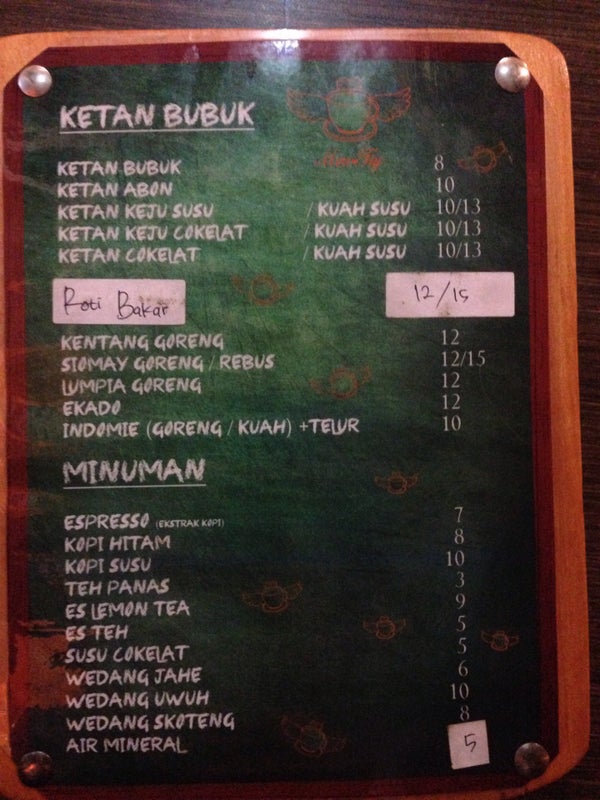 KETAN BUBUK
KETAN BUBUK 8
KETAN ABON 10
KETAN KEJU SUSU / KUAH SUSU 10/13
KETAN KEJU COKELAT / KUAH SUSU 10/13
KETAN COKELAT / KUAH SUSU 10/13
Roti Bakar 12/15
KENTANG GORENG 12
SIOMAY GORENG / REBUS 12/15
LUMPIA GORENG 12
EKADO 12
INDOMIE (GORENG / KUAH) +TELUR 10
MINUMAN
ESPRESSO (EKSTRAK KOPI) 7
KOPI HITAM 8
KOPI SUSU 10
TEH PANAS 3
ES LEMON TEA 9
ES TEH 5
SUSU COKELAT 5
WEDANG JAHE 6
WEDANG UWUH 10
WEDANG SKOTENG 8
AIR MINERAL 5